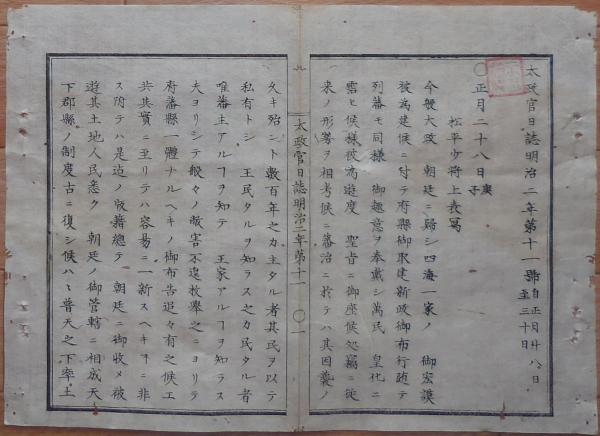 太政官日誌明治二年第十一號 自正月廿八日至三十日
〇正月二十八日庚子
松平少将上表寫
今般大政 朝廷ニ歸シ四海一家ノ 御宏謨
被為建候ニ付テ府縣御取建新政御布行随テ
列藩モ同様 御趣意ヲ奉戴シ萬民 皇化ニ
霑ヒ候様被為遊度 聖旨ニ御座候処竊ニ従
来ノ形勢ヲ相考候ニ藩治ニ於テハ其因襲ノ
太政官日誌明治二年第十一 〇一
久キ殆ント數百年之カ主タル者其民ヲ以テ
私有トシ 王民タルヲ知ラス之カ民タル者
唯藩主アルヿヲ知テ 王家アルヿヲ知ラス
夫ヨリシテ般々ノ故害不遑枚擧之ニヨリテ
府藩縣一體ナルヘキノ御布告追々有之候エ
共其實ニ至リテハ容易ニ一新スヘキヿニ非
ス仍テハ是迄ノ版籍總テ 朝廷ニ御收メ被
遊其土地人民悉ク 朝廷ノ御管轄ニ相成天
下郡縣ノ制度古ニ復シ候ハヽ普天之下率土